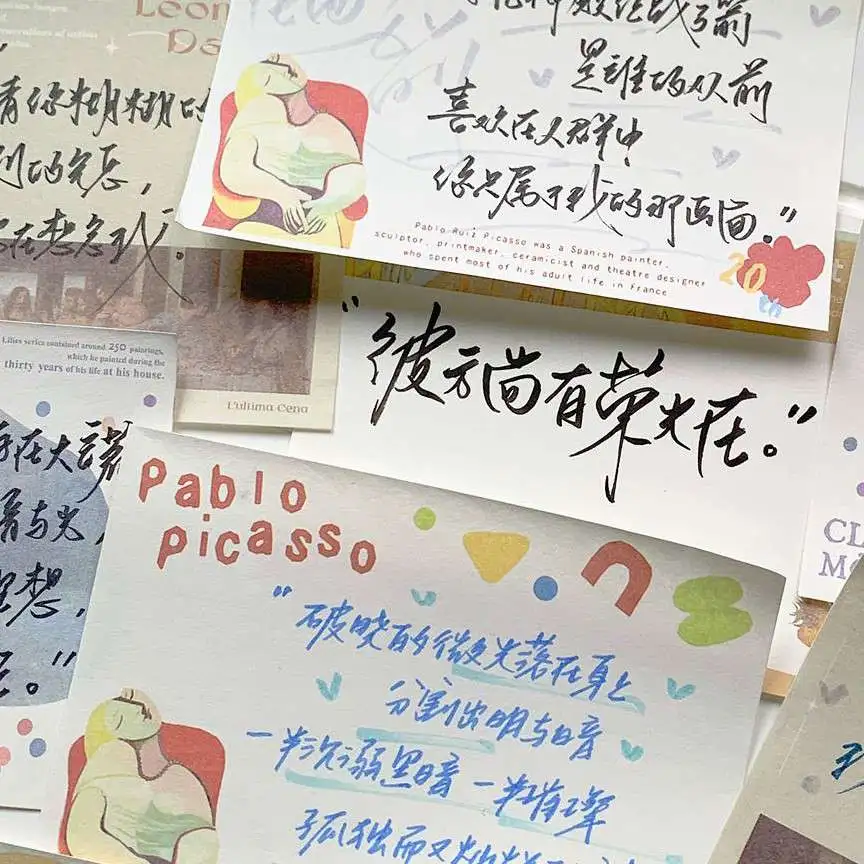 Leon
Da
看你糊糊的
在想念我"
thirty years of his life at his house.
Lilies series contained around 250 paintings,
which he painted during the
L'ultima Cena
是谁的从前
喜欢在人群中
你只属于我的那画面。"
Pablo Ruiz Picasso was a Spanish painter,
sculptor, printmaker, ceramicist and theatre designer
who spent most of his adult life in France
20th
"彼方尚有荣光在。"
存在大
与光,
理想,
CL
MO
Pablo
Picasso
"破晓的微光落在身上
分割出明与暗
一半沉溺黑暗 一半璀璨
孤独而又